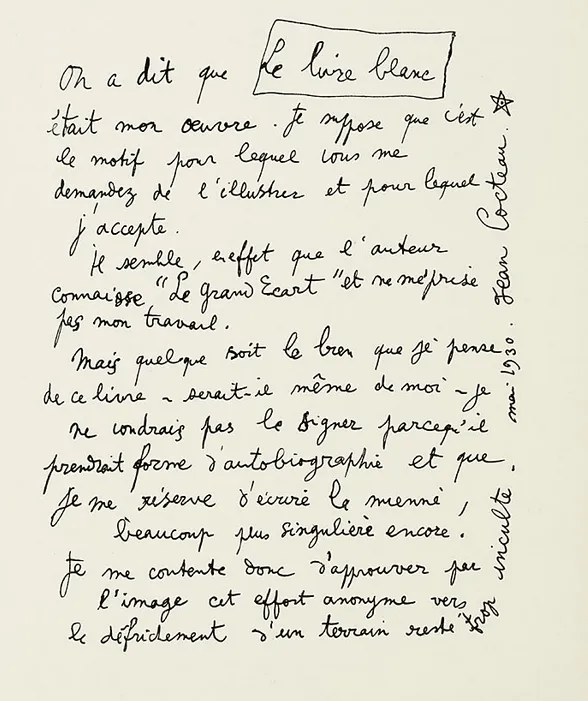 On a dit que Le livre blanc
était mon œuvre. Je suppose que c'est
le motif pour lequel vous me
demandez de l'illustrer et pour lequel
j'accepte.
Il semble, en effet que l'auteur
connaisse "Le Grand Ecart" et ne méprise
pas mon travail.
Mais quelque soit le bien que je pense
de ce livre - serait-il même de moi - je
ne voudrais pas le signer parcequ'il
prendrait forme d'autobiographie et que
je me réserve d'écrire la mienne,
beaucoup plus singulière encore.
Je me contente donc d'approuver par
l'image cet effort anonyme vers
le défrichement d'un terrain resté
trop inculte. mai 1930. Jean Cocteau.